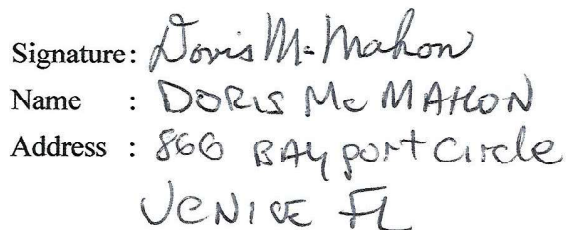 Signature: Doris McMahon
Name : DORIS Mc MAHON
Address : 866 BAYport Circle
VENICE FL